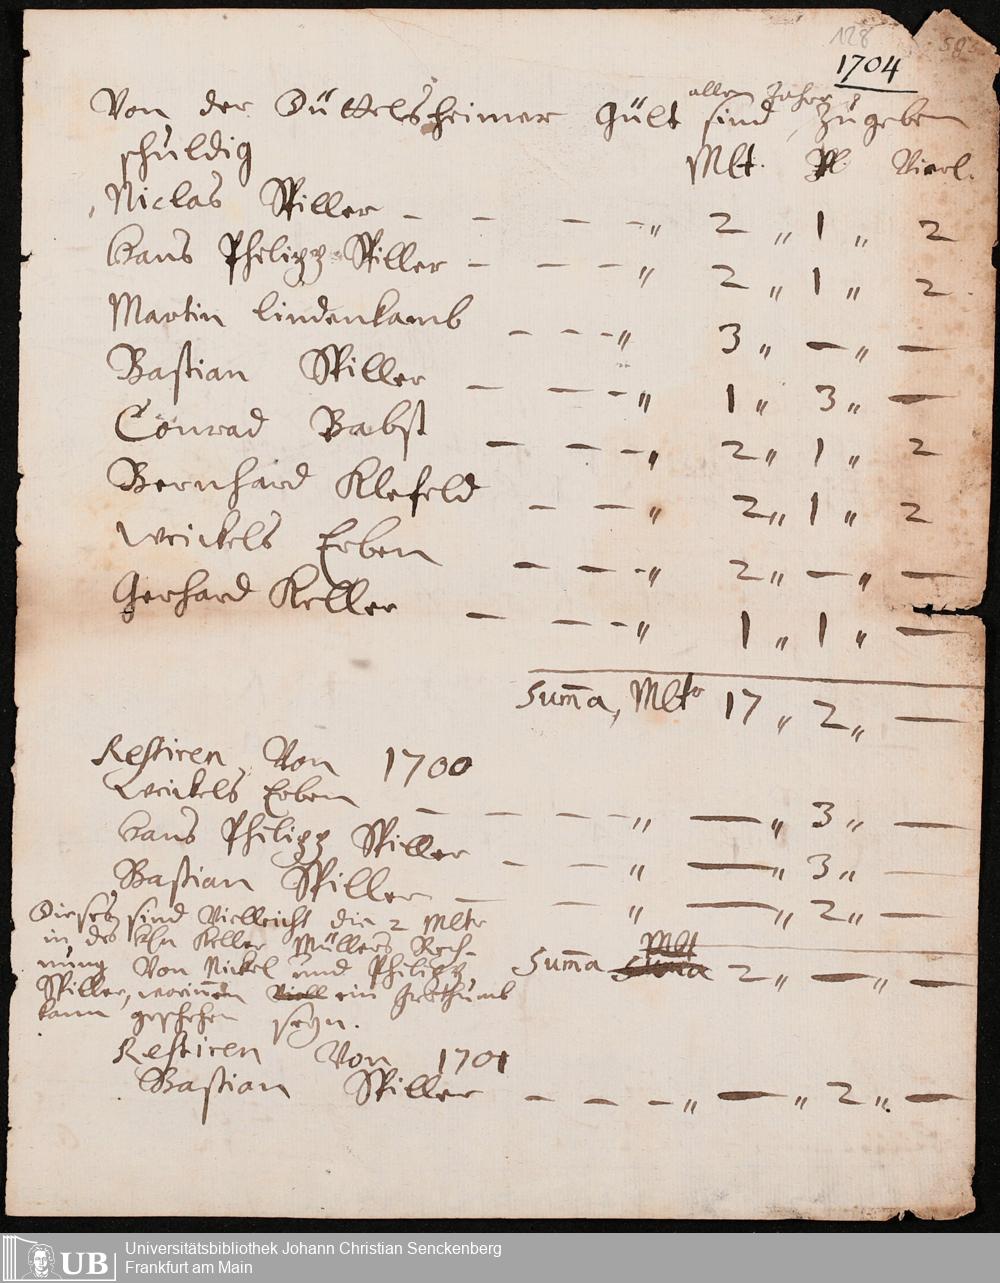 128
1704
Von der Düttelsheimer Gült sind allen Jahrs Zugeben
schuldig Mlt. Vierl.
Niclas Spiller - - - - " 2 " 1 " 2
Hans Philipp Spiller - - - - " 2 " 1 " 2
Martin Lindenkamb - - - " 3 " - " -
Bastian Spiller - - - " 1 " 3 " -
Conrad Babst - - - " 2 " 1 " 2
Bernhard Klefeld - - " 2 " 1 " 2
Weickels Erben - - - " 2 " - " -
Gerhard Keller - - - " 1 " 1 " -
Sum̄a, Mltr 17 " 2 " -
Restiren Von 1700
Weickels Erben - - - - - " - " 3 " -
Hans Philipp Spiller - - " - " 3 " -
Bastian Spiller - - - " - " 2 " -
Dieses sind Vielleicht die 2 Mltr
in des Keller Müllers Rech-
nung Von Nickel und Philipp
Spiller, worinnen ein Irrthumb
kann geschehen seyn.
Sum̄a Mlt 2 " - " -
Restiren Von 1701
Bastian Spiller - - - " - " 2 " -
UB
Universitätsbibliothek Johann Christian Senckenberg
Frankfurt am Main